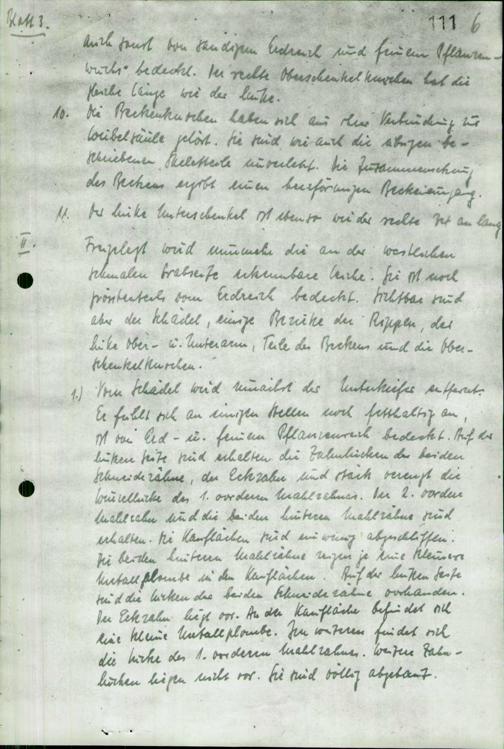 Blatt 3.
111 6
auch sonst von sandigem Erdreich und feinem Pflanzen-
wuchs bedeckt. Der rechte Oberschenkelknochen hat die
gleiche Länge wie der linke.
10. Die Beckenknochen haben sich aus ihrer Verbindung zur
Wirbelsäule gelöst. Sie sind wie auch die übrigen be-
schriebenen Skeletteile unverletzt. Die Zusammensetzung
des Beckens ergibt einen herzförmigen Beckeneingang.
11. Der linke Unterschenkel ist ebenso wie der rechte cm lang
II. Freigelegt wird nunmehr die an der westlichen
schmalen Grabseite erkennbare Leiche. Sie ist noch
grösstenteils vom Erdreich bedeckt. Sichtbar sind
aber der Schädel, einige Bezirke der Rippen, der
linke Ober- u. Unterarm, Teile des Beckens und die Ober-
schenkelknochen.
1.) Vom Schädel wird zunächst der Unterkiefer entfernt.
Er fühlt sich an einigen Stellen noch fetthaltig an,
ist von Erd- u. feinem Pflanzenreich bedeckt. Auf der
linken Seite sind erhalten die Zahnlücken der beiden
Schneidezähne, der Eckzahn, und stark verengt die
Wurzellücke des 1. vorderen Mahlzahnes. Der 2. vordere
Mahlzahn und die beiden hinteren Mahlzähne sind
erhalten. Die Kauflächen sind ein wenig abgeschliffen.
Die beiden hinteren Mahlzähne zeigen je eine kleinere
Metallplombe in den Kauflächen. Auf der linken Seite
sind die Lücken der beiden Schneidezähne vorhanden.
Der Eckzahn liegt vor. An der Kaufläche befindet sich
eine kleine Metallplombe. Im weiteren findet sich
die Lücke des 1. vorderen Mahlzahnes. Weitere Zahn-
lücken liegen nicht vor. Sie sind völlig abgebaut.